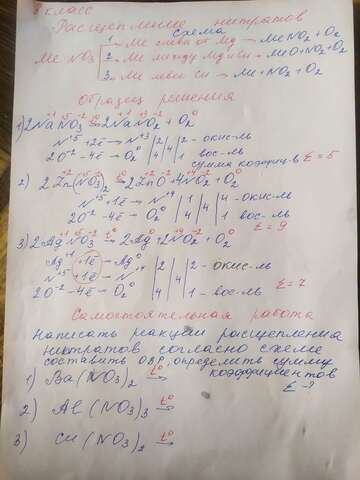 8 класс
Расщепление нитратов
схема
Me NO3 1 Ме слева от Mg → MeNO2 + O2
2 Ме между Mg и Cu → MeO + NO2 + O2
3 Ме левее Cu → Me + NO2 + O2
Образец решения
1) 2Na+1N+5O3-2 t° → 2Na+1N+3O2-2 + O2 0
N+5 +2ē → N+3 | 2 | 4 | 2 - окис-ль
2O-2 - 4ē → O2 0 | 4 | | 1 вос-ль
сумма коэфициц-в Σ = 5
2) 2 Zn+2(N+5O3-2)2 t° → 2 Zn+2O-2 + 4N+4O2-2 + O2 0
N+5 + 1ē → N+4 | 1 | 4 | 4 - окис-ль
2O-2 - 4ē → O2 0 | 4 | | 1 вос-ль
Σ = 9
3) 2Ag+1N+5O3-2 t° → 2Ag0 + 2N+4O2-2 + O2 0
Ag+1 + 1ē → Ag0 | 2 | | 2 - окис-ль
N+5 + 1ē → N+4 | | 4 |
2O-2 - 4ē → O2 0 | 4 | | 1 - вос-ль
Σ = 7
Самостоятельная работа
Написать реакции расщепления
нитратов согласно схеме
составить ОВР, определить сумму
коэффициентов
Σ - ?
1) Ba(NO3)2 t° →
2) Al(NO3)3 t° →
3) Cu(NO3)2 t° →